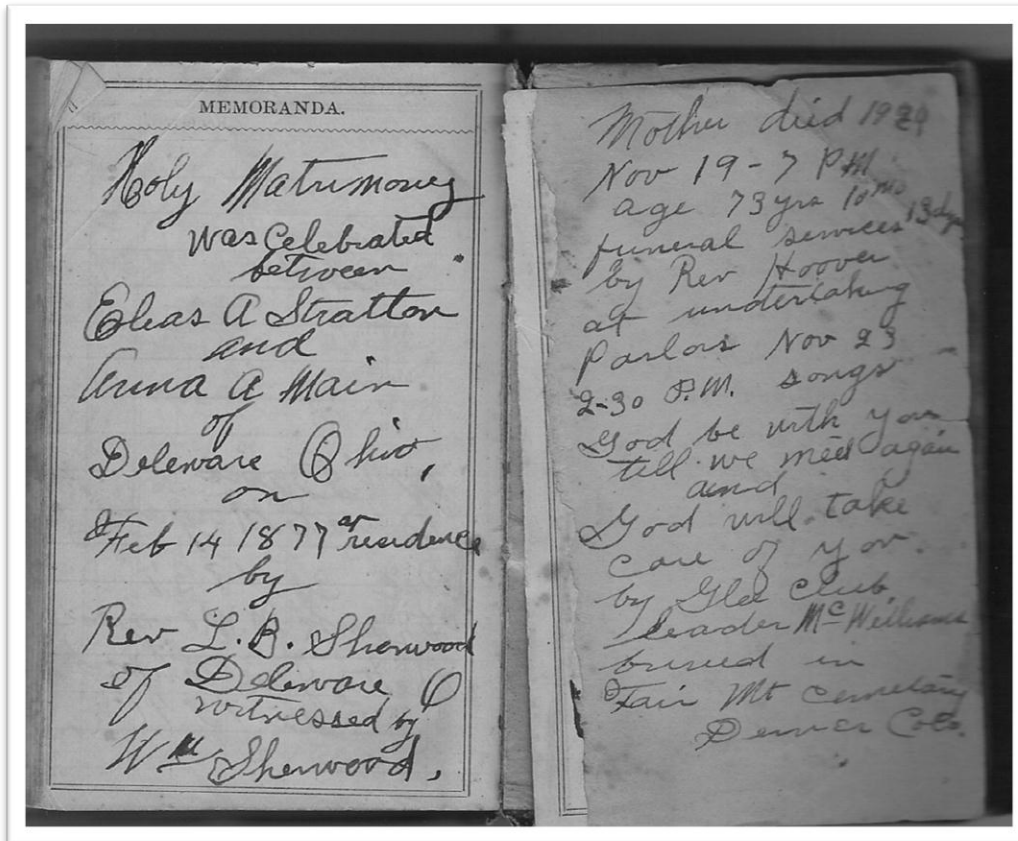 MEMORANDA.
Holy Matrimoney
was Celebrated
between
Eleas A Stratton
and
Anna A Main
of
Deleware Ohio,
on
Feb 14 1877 at residence
by
Rev L. B. Sherwood
of Deleware O
witnessed by
Wm Sherwood.
Mother died 1929
Nov 19 - 7 P.M.
age 73 yrs 10 mo 13 dys
funeral services
by Rev Hoover
at undertaking
Parlors Nov 23
2-30 P.M. songs
God be with you
till we meet again
and
God will take
care of you.
by Glee Club
leader McWilliams
buried in
Fair Mt Cemetary
Denver Colo.